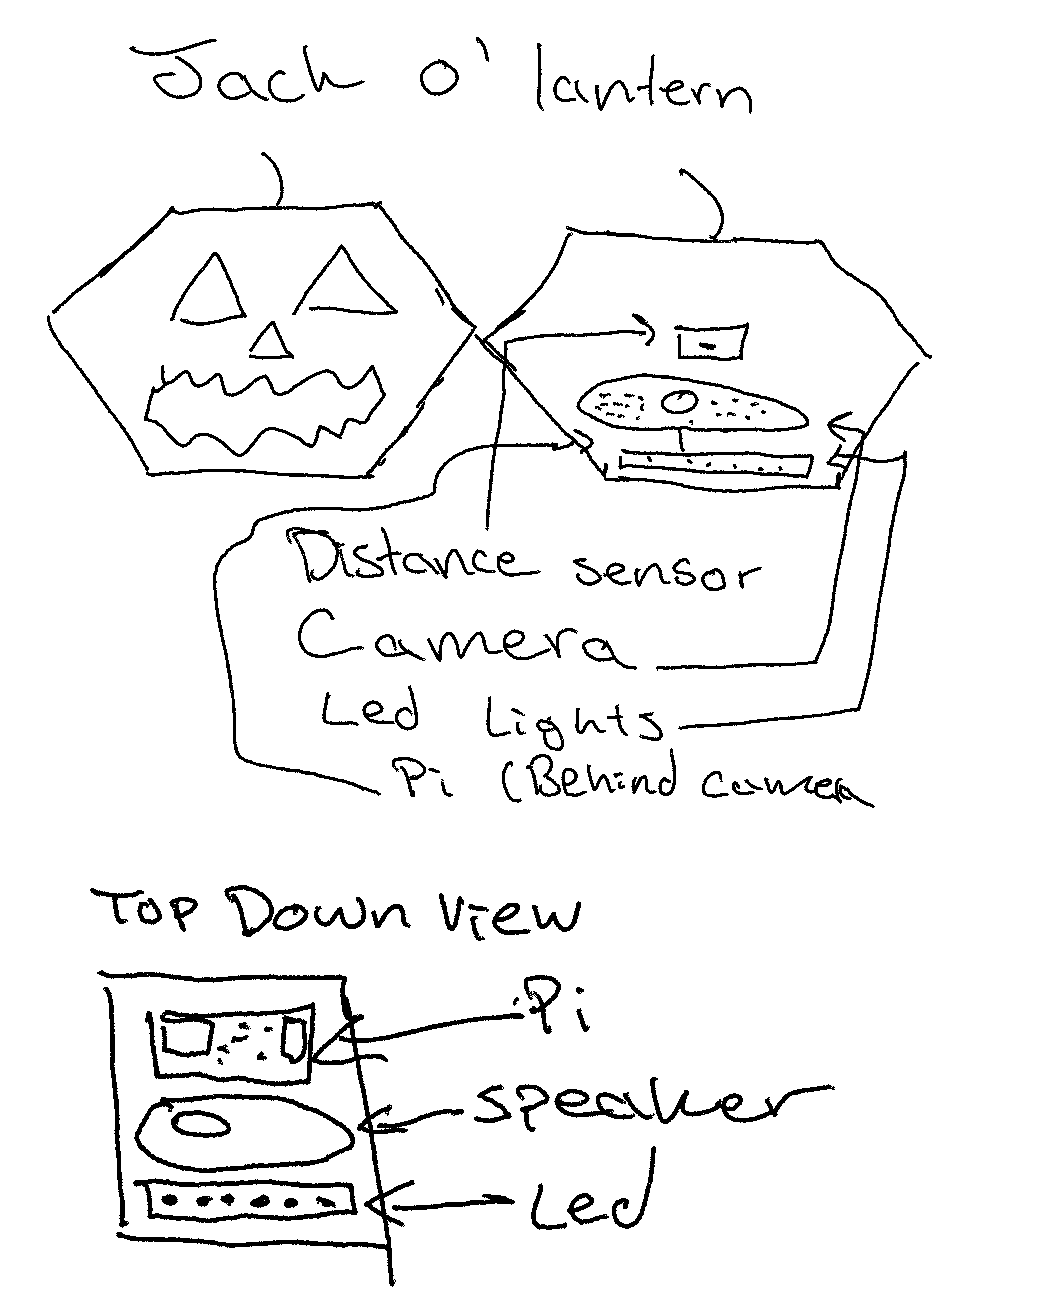 Jack o' lantern
Distance sensor
Camera
Led Lights
Pi (Behind camera
Top Down View
Pi
Speaker
Led